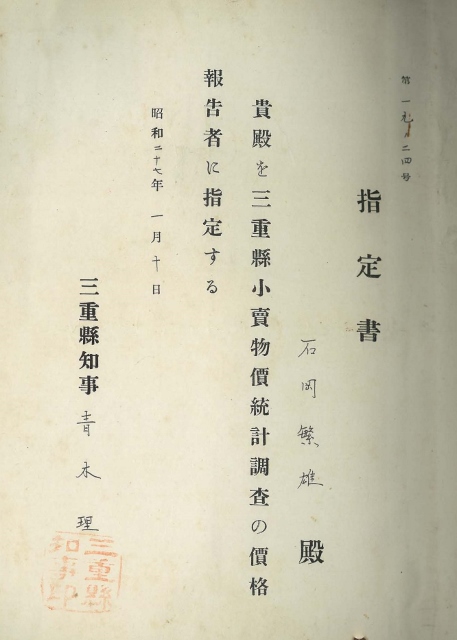 第一九ノ二四号
指定書
石岡繁雄 殿
貴殿を三重縣小賣物價統計調査の價格
報告者に指定する
昭和二十七年 一月十日
三重縣知事 青木理
三重縣
知事印